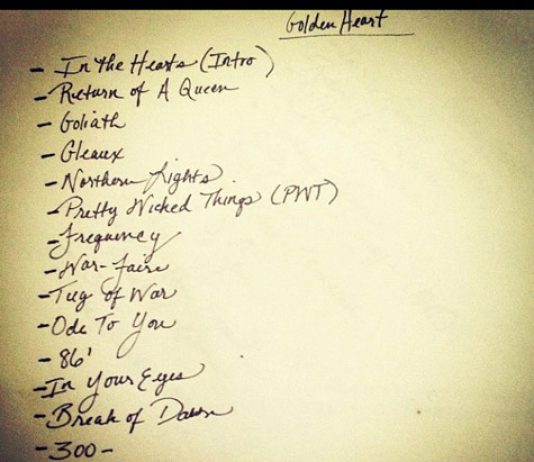 Golden Heart
- In the Hearts (Intro)
- Return of A Queen
- Goliath
- Gleaux
- Northern Lights
- Pretty Wicked Things (PWT)
- Frequency
- War-faire
- Tug of War
- Ode To You
- 86'
- In Your Eyes
- Break of Dawn
- 300 -